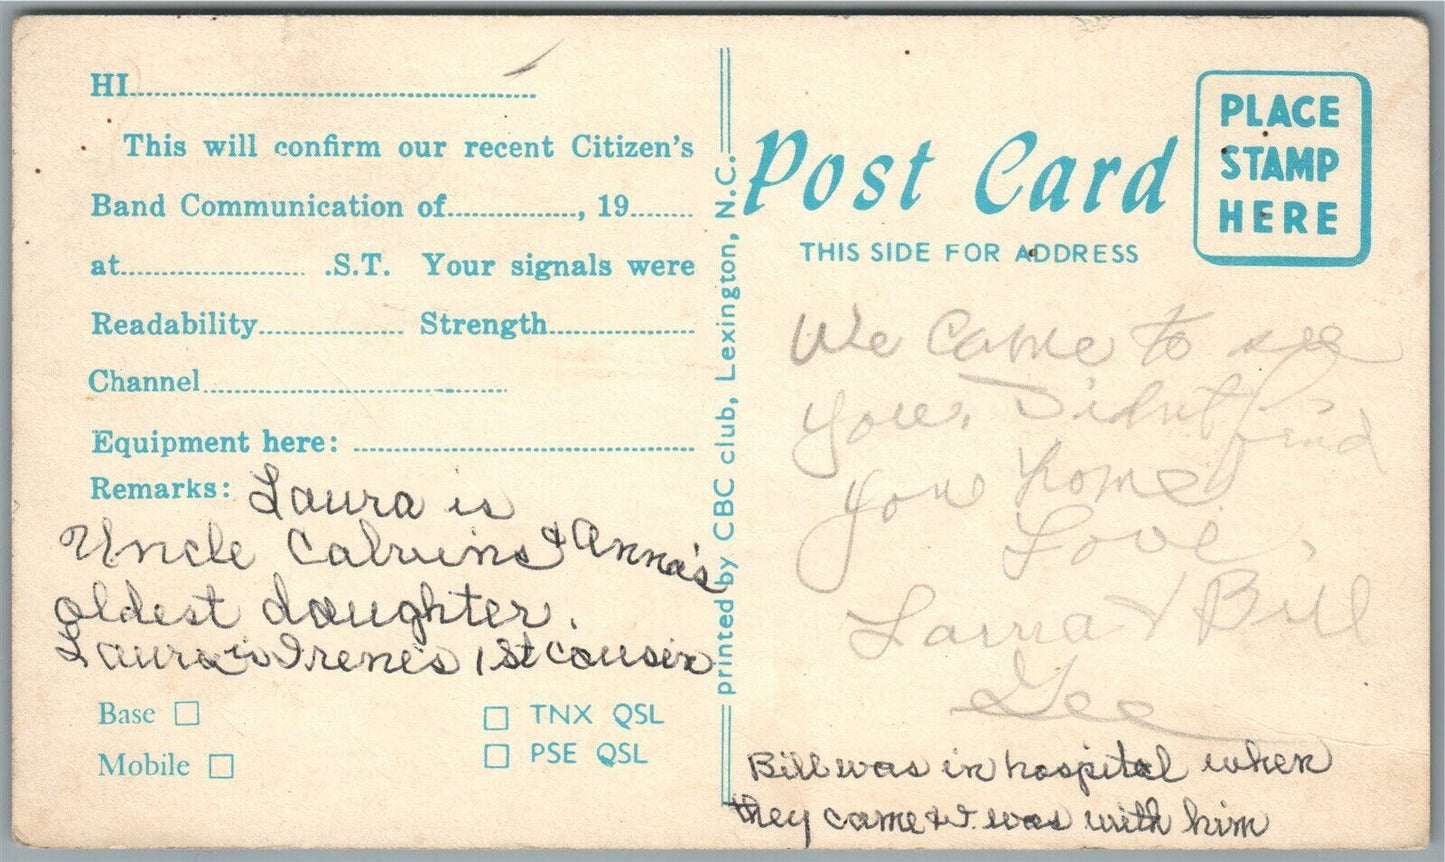 HI
This will confirm our recent Citizen's
Band Communication of, 19
at .S.T. Your signals were
Readability Strength
Channel
Equipment here:
Remarks: Laura is
Uncle Calvins & Anna's
oldest daughter.
Laura is Irene's 1st cousin
Base □
Mobile □
□ TNX QSL
□ PSE QSL
printed by CBC club, Lexington, N.C.
Post Card
THIS SIDE FOR ADDRESS
PLACE
STAMP
HERE
We came to see
you, Didn't find
you home
Love,
Laura & Bill
Gee
Bill was in hospital when
they came & I was with him